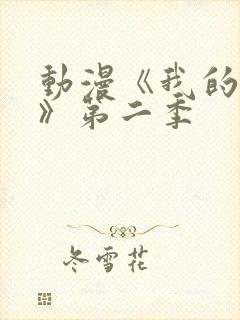 動漫《我的
》第二季
冬雪花